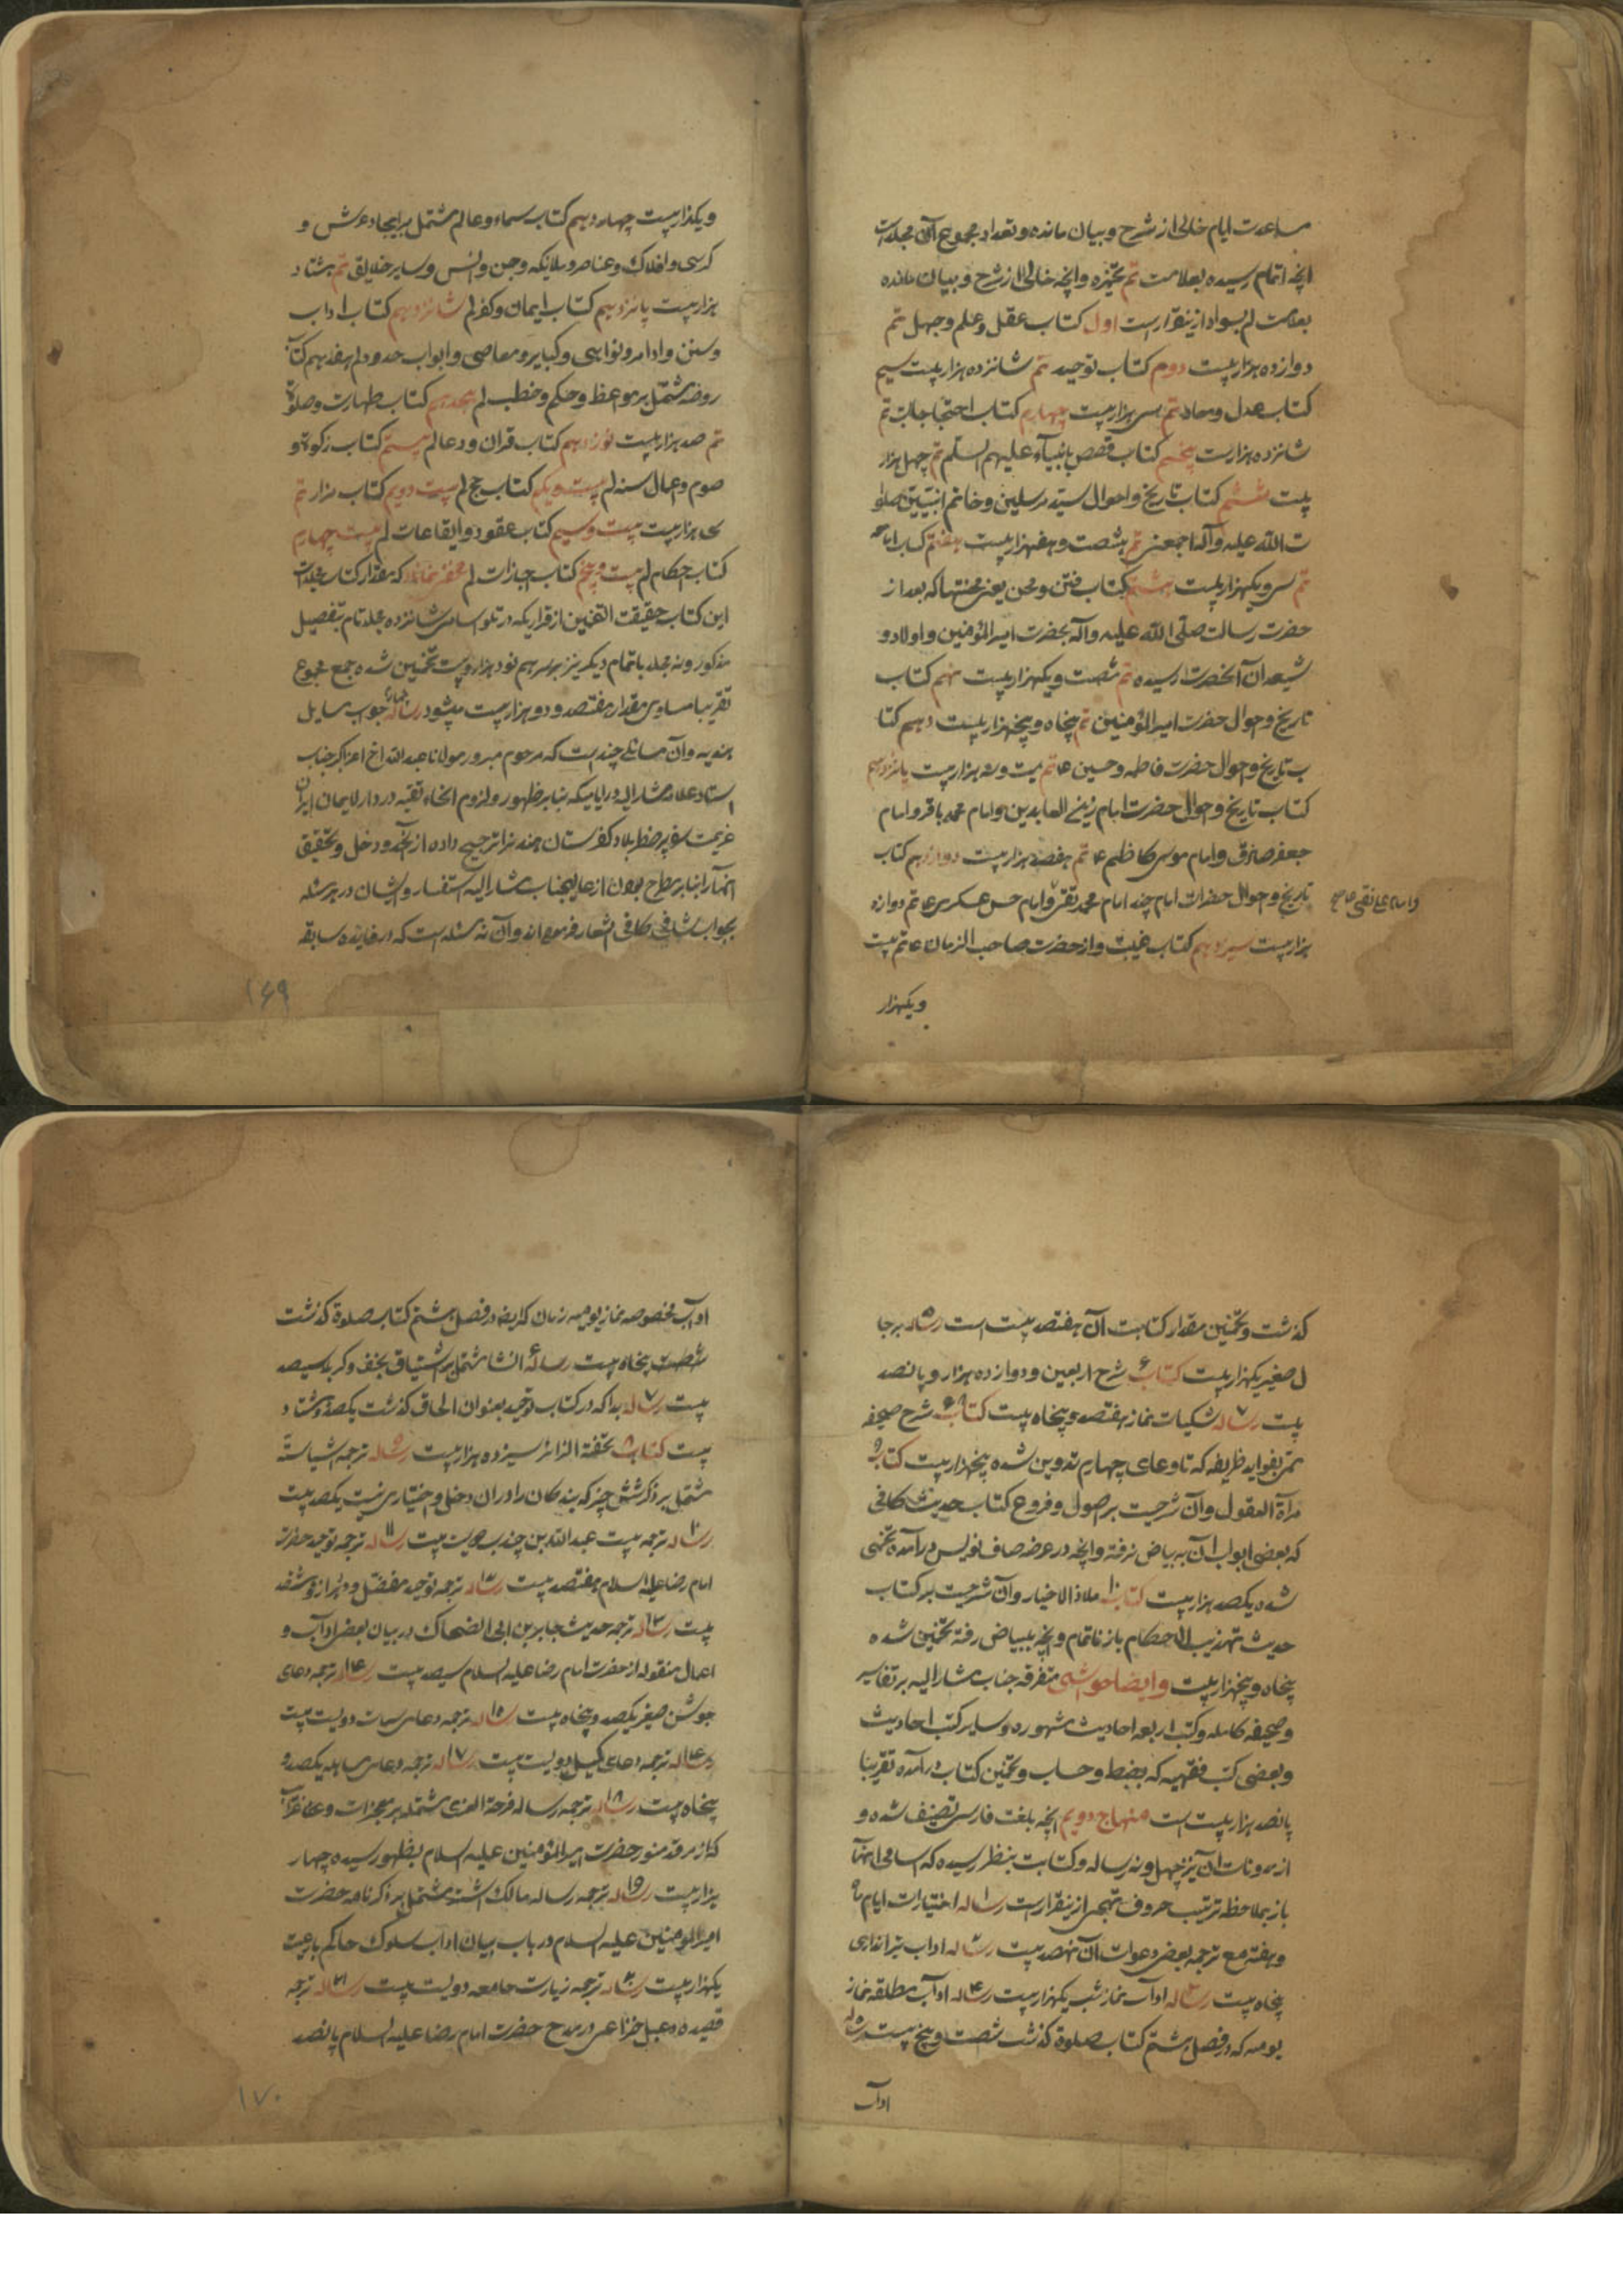 مساعدت ایام خالی از شرح و بیان مانده و تعداد مجموع آن مجلدات
انچه اتمام رسیده بعلامت تم و انچه خالی از شرح و بیان مانده
بعلامت لم بسواد از ینقرارست اول کتاب عقل و علم و جهل تم
دوازده هزار بیت دوم کتاب توحید تم شانزده هزار بیت سیم
کتاب عدل و معاد تم سی هزار بیت چهارم کتاب احتجاجات تم
شانزده هزار بیت پنجم کتاب قصص انبیآء علیهم السلم تم چهل هزار
بیت ششم کتاب تاریخ و احوال سید مرسلین و خاتم النبیین صلوا
ت الله علیه و آله اجمعین تم شصت و هفهزار بیت هفتم کتاب امامه
تم سی و یکهزار بیت هشتم کتاب فتن و محن یعنی محنتها که بعد از
حضرت رسالت صلی الله علیه و آله بحضرت امیر المؤمنین و اولاد و
شیعه ان آنحضرت رسیده تم شصت و یکهزار بیت نهم کتاب
تاریخ و احوال حضرت امیر المؤمنین تم پنجاه و پنجهزار بیت دهم کتا
ب تاریخ و احوال حضرت فاطمه و حسین ع تم هزار بیت یازدهم
کتاب تاریخ و احوال حضرت امام زین العابدین و امام محمد باقر و امام
جعفر صادق و امام موسی کاظم ع تم هزار بیت دوازدهم کتاب
تاریخ و احوال حضرات امام چند امام محمد تقی و امام حسن عسکری ع تم دوازه
و امام علی نقی صح
هزار بیت سیزدهم کتاب غیبت و از حضرت صاحب الزمان ع تم بیت
ویکهزار
ویکهزار بیت چهاردهم کتاب سماء و عالم مشتمل بر ایجاد عرش و
کرسی و افلاک و عناصر و ملائکه و جن و انس و سایر خلایق تم هشتاد
هزار بیت پانزدهم کتاب ایمان و کفر لم شانزدهم کتاب اداب
و سنن و اوامر و نواهی و کبایر و معاصی و ابواب حدود لم هفدهم کتاب
روضه مشتمل بر مواعظ و حکم و خطب لم هجدهم کتاب طهارت و صلوة
تم صد هزار بیت نوزدهم کتاب قران و دعا لم بیستم کتاب زکوة و
صوم و اعمال سنه لم بیست و یکم کتاب حج لم بیست دویم کتاب مزار تم
سی هزار بیت بیست و سیم کتاب عقود و ایقاعات لم بیست چهارم
کتاب احکام لم بیست و پنجم کتاب اجازات لم مخفی نماند که مقدار کتاب مجلدات
این کتاب حقیقت القرین از قراریکه در تلو اسامی شانزده مجلد تام بتفصیل
مذکور و نه مجلد باتمام دیکر نیز بر سر هم نود هزار بیت تخمین شده جمع مجموع
تقریبا مساوی مقدار هفتصد و دو هزار بیت میشود رساله جواب مسایل
هندیه و آن مسائل چندیست که مرحوم مبرور مولانا عبدالله اخ اعز اکرم جناب
استاد علامه مشار الیه در ایامیکه بنا بر ظهور و لزوم انحاء تقیه در دار الایمان ایران
عزیمت سفر پر خطر بلاد کفرستان هند را ترجیح داده از آنحدود دخل و تحقیق
انهآ را بنا بر مطرح بودن از عالیجناب مشار الیه استفسار و ایشان در هر مسئله
بجواب شافی کافی اشعار فرموده اند و آن نه مسئله است که در فایده سابقه
۱۶۹
کذشت و تخمین مقدار کتابت آن هفتصد بیت است رساله برجا
ل صغیر یکهزار بیت کتاب شرح اربعین و دوازده هزار و پانصد
بیت رساله شکیات نماز هفتصد و پنجاه بیت کتاب شرح صحیفه
بفواید ظریفه که تا دعای چهارم تدوین شده پنجهزار بیت کتاب
مرآة العقول و آن شرحیست بر اصول و فروع کتاب حدیث کافی
که بعضی ابواب آن به بیاض نرفته و انچه در عرضه صاف نویس درآمده تخمی
شده یکصد هزار بیت کتاب ملاذ الاخیار و آن شرحیست بر کتاب
حدیث تهذیب الاحکام باز ناتمام و انچه ببیاض رفته تخمین شده
پنجاه و پنجهزار بیت و ایضا حواشی متفرقه جناب مشار الیه بر تفاسیر
و صحیفه کامله و کتب اربعه احادیث مشهوره و سایر کتب احادیث
و بعضی کتب فقهیه که بضبط و حساب و تخمین کتاب درآمده تقریبا
پانصد هزار بیت است منهاج دویم انچه بلغت فارسی تصنیف شده و
از مدونات ان نیز چهل و نه رساله و کتابت بنظر رسیده که اسامی انهآ
باز بملاحظه ترتیب حروف تهجی از ینقرارست رساله اختیارات ایام ماه
و هفته مع ترجمه بعض دعوات آن نهصد بیت رساله اداب تیراندازی
پنجاه بیت رساله ادآب نماز شب یکهزار بیت رساله ادآب مطلقه نماز
یومیه که در فصل هشتم کتاب صلوة کذشت شصت و پنج بیت رساله
ادآب
ادآب مخصوصه نماز یومیه زنان که ایضا در فصل هشتم کتاب صلوة کذشت
پنجاه بیت رساله انشا مشتمل بر اشتیاق نجف و کربلا سیصد
بیت رساله بدا که در کتاب توحید بعنوان الحاق کذشت یکصد و هشتاد
بیت کتاب تحفة الزائر سیزده هزار بیت رساله ترجمه اشیاستة
مشتمل بر ذکر شش چیز که بندکان را در ان دخل و اختیاری نیست یکصد بیت
رساله ترجمه بیت عبدالله بن چندب دویست بیت رساله ترجمه توحید حضرت
امام رضا علیه السلام هفتصد بیت رساله ترجمه توحید مفضل دو هزار و
بیت رساله ترجمه حدیث جابر بن ابی الضحاک در بیان بعض ادآب و
اعمال منقوله از حضرت امام رضا علیه السلام سیصد بیت رساله ترجمه دعای
جوشن صغیر یکصد و پنجاه بیت رساله ترجمه دعای سمات دویست بیت
رساله ترجمه دعای کمیل دویست بیت رساله ترجمه دعای مباهله یکصد و
پنجاه بیت رساله ترجمه رساله فرحة الغری مشتمله بر معجزات و
که از مرقد منور حضرت امیر المؤمنین علیه السلام بظهور رسیده چهار
هزار بیت رساله ترجمه رساله مالک اشتر مشتمل بر ذکر نامه حضرت
امیر المومنین علیه السلام در باب بیان اداب سلوک حاکم با رعیت
یکهزار بیت رساله ترجمه زیارت جامعه دویست بیت رساله ترجمه
قصیده دعبل خزاعی در مدح حضرت امام رضا علیه السلام پانصد
۱۷۰